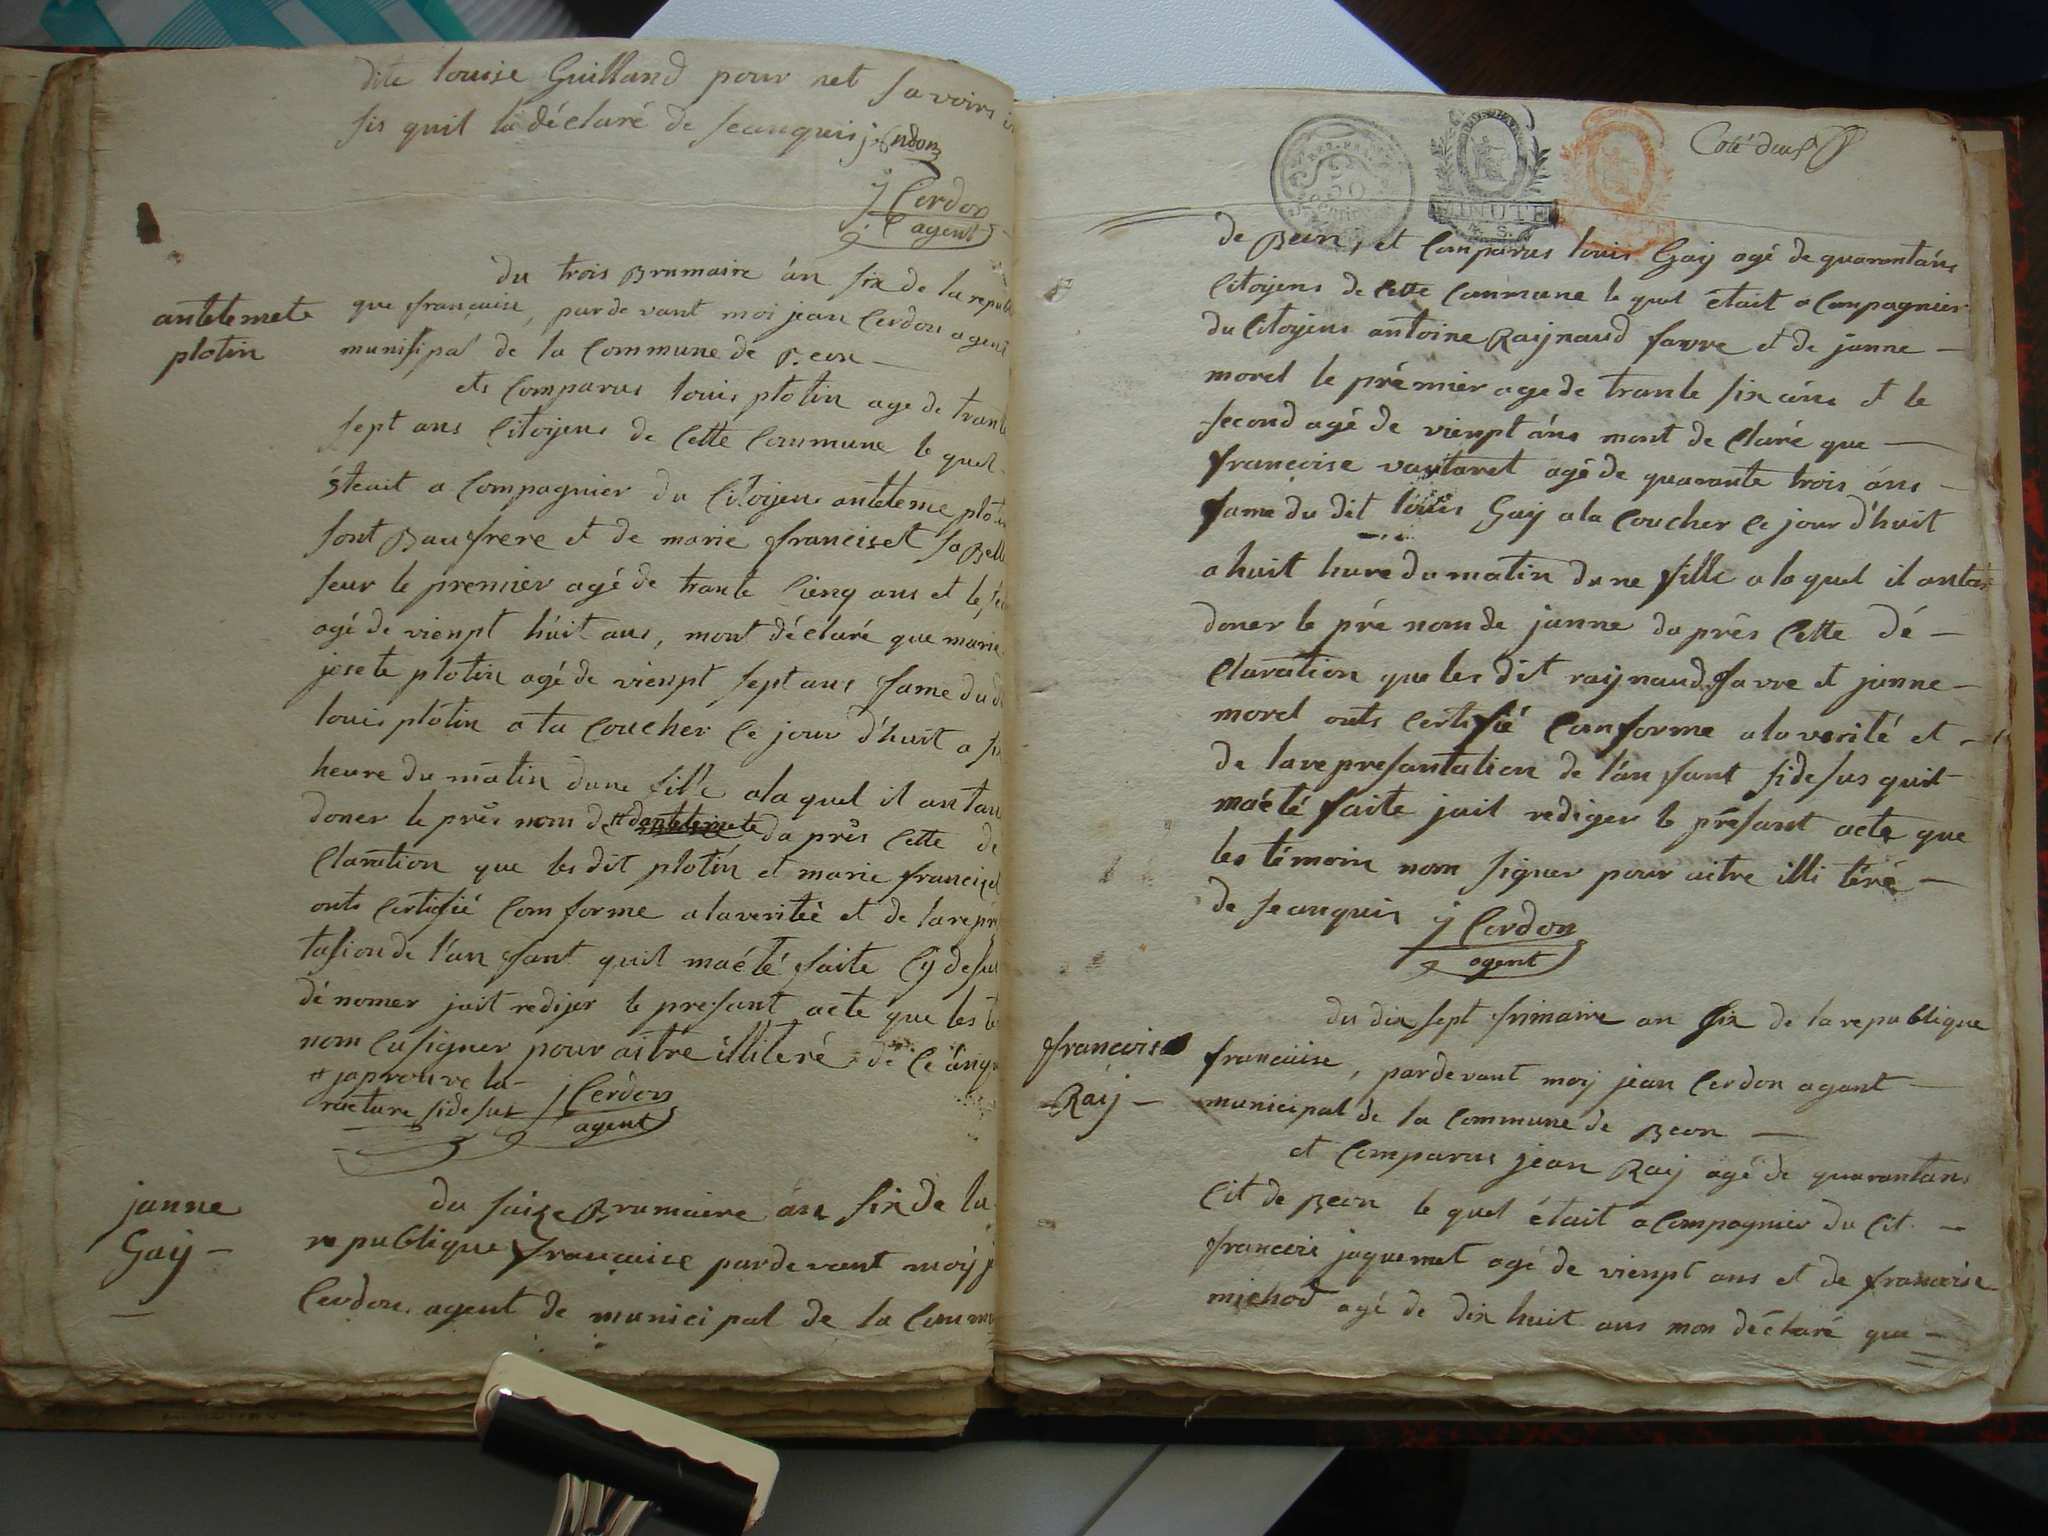 dite louise Guilland pour net savoire
sis quil la déclaré de seanquis j Cerdon
j Cerdon
agent
antetemete
plotin
du trois Brumaire án six de la republi
que francaise, parde vant moi jean Cerdon agent
munisipal de la Commune de Beon
ets Comparus louis plotin age de trante
sept ans Citoyens de Cette Commune le quel
éteait a Compagnier du Citoyens anteteme plotin
sont Baufrere et de marie franciset sa Belle
seur le premier agé de trante Cienq ans et le
agé de vienpt húit ans, mont déclaré que marie
josete plotin agé de vienpt sept ans fame du d
louis plotin a la Coucher Ce jour d'huit a six
heure du matin dune fille ala quel il an tan
doner le prés nom de dantetemete da prês Cette de
Claration que les dit plotin et marie franciset
onts Certifié Comforme a la veritée et de la repré
tasion de l'an fant quil maété faite Cy desus
dé nomer jait redijer le presant acte que les te
nom Cusigner pour aitre illiteré de Ce ánqu
# japrouve la
racture sidesus j Cerdon
agent
janne
Gaij
du saize Brumaire án six de la
republique francaise parde vant moij j
Cerdon agent de munici pal de la Commu
Coté deux
50
MINUTE
de Beon, et Comparus louis Gaij agé de quarant áns
Citoyens de Cette Commune le quel était a Compagnier
du Citoyens antoine Raijnaud favre et de janne
morel le prémier age de trante six áns et le
second agé de vienpt áns mont de Claré que
francoise vautaret agé de quarante trois áns
fame du dit louis Gaij a la Coucher Ce jour d'huit
a huit hure du matin du ne fille a la quel il antan
doner le pré nom de janne da prês Cette dé
Claration que les dit raijnaud favre et janne
morel onts Certifié Comforme a la verité et
de la represantation de l'án fant sidesus quil
maété faite jait rediger le présant acte que
les témoin nom signer pour aitre illi téré
de seanquis j Cerdon
agent
francoise
Raij
du dix sept frimaire an six de la republique
francaise, pardevant moij jean Cerdon agant
municipal de la Commune de Beon
et Comparus jean Raij agé de quarantans
Cit de Beon le quel était a Compagnier du Cit.
francois jaquemet agé de vienpt ans et de francoise
michod agé de dix huit ans mon déclaré que